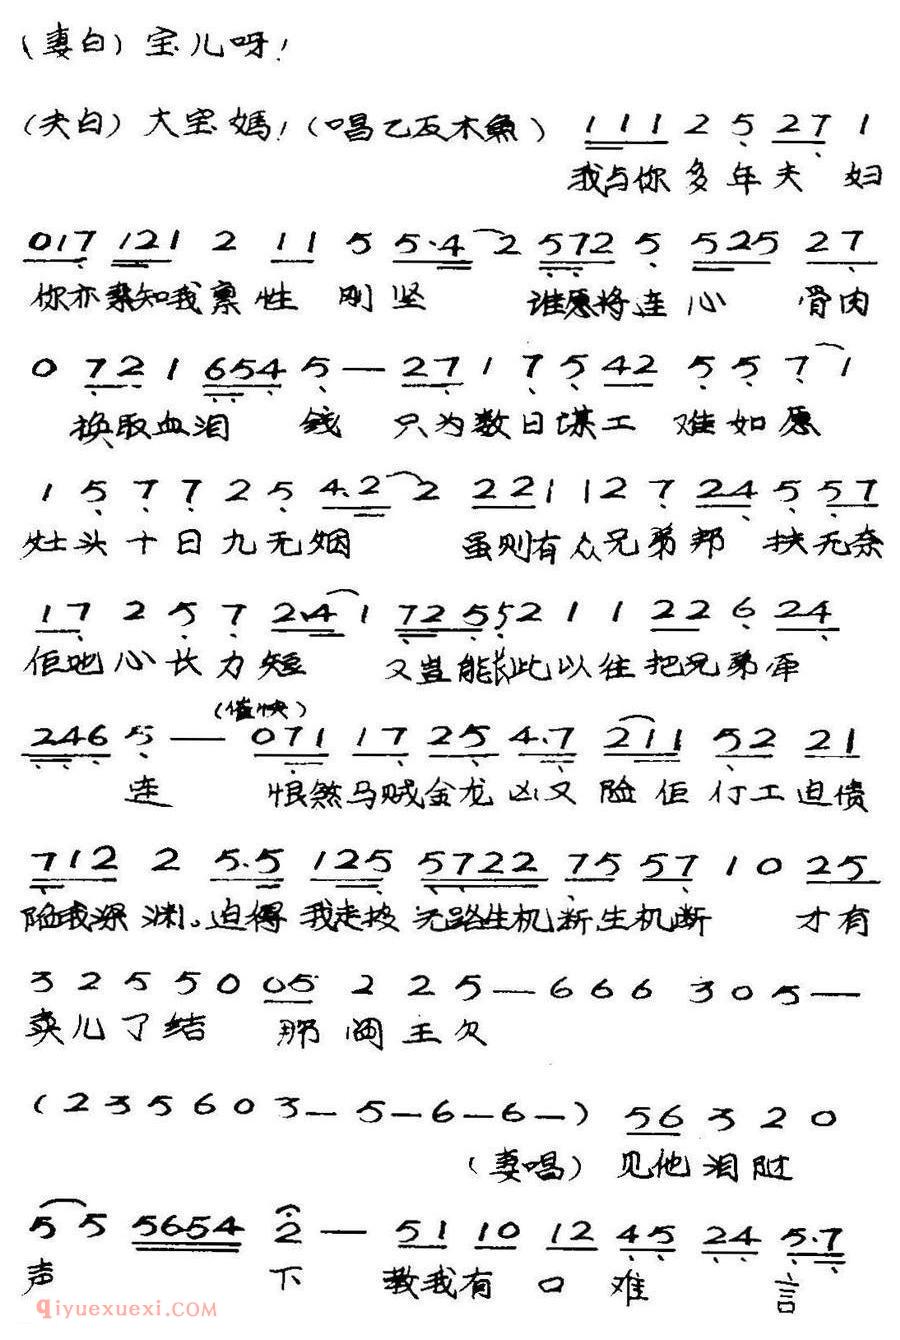 (妻白)宝儿呀!
(夫白)大宝媽!(唱乙反木魚) 1 1 1 2 5 2 7 1
我与你多年夫妇
0 1 7 1 2 1 2 1 1 5 5·4 2 5 7 2 5 5 2 5 2 7
你亦素知我禀性刚坚 谁愿将连心骨肉
0 7 2 1 6 5 4 5 — 2 7 1 7 5 4 2 5 5 7 1
换取血泪钱 只为数日谋工难如愿
1 5 7 7 2 5 4·2 2 2 2 1 1 2 7 2 4 5 5 7
灶头十日九无烟 虽则有众兄弟帮扶无奈
1 7 2 5 7 2·4 1 7 2 5 5 2 1 1 2 2 6 2 4
佢哋心长力短 又岂能长此以往把兄弟牵
(催快)
2 4 6 5 — 0 7 1 1 7 2 5 4·7 2 1 1 5 2 2 1
连 恨煞马贼金龙凶又险佢行工迫债
7 1 2 2 5·5 1 2 5 5 7 2 2 7 5 5 7 1 0 2 5
陷我深渊。迫得我走投无路生机断,生机断 才有
3 2 5 5 0 0 5 2 2 5 — 6 6 6 3 0 5 —
卖儿了结 那阎王欠
(2 3 5 6 0 3 — 5 — 6 — 6 —) 5 6 3 2 0
(妻唱)见他泪随
5 5 5 6 5 4 2 — 5 1 1 0 1 2 4 5 2 4 5·7
声 下 教我有口难 言
qiyuexuexi.com